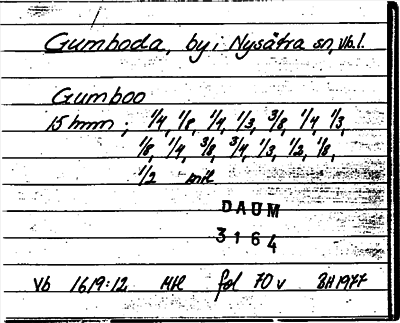 Gumboda, by i Nysätra sn, Vb.l.
Gumboo
15 hmn ; 1/4, 1/8, 1/4, 1/3, 3/8, 1/4, 1/3,
1/8, 1/4, 3/8, 3/4, 1/3, 1/2, 1/8,
1/2
DAUM
3164
Vb 1619:12 Mtl fol 70 v BH 1977